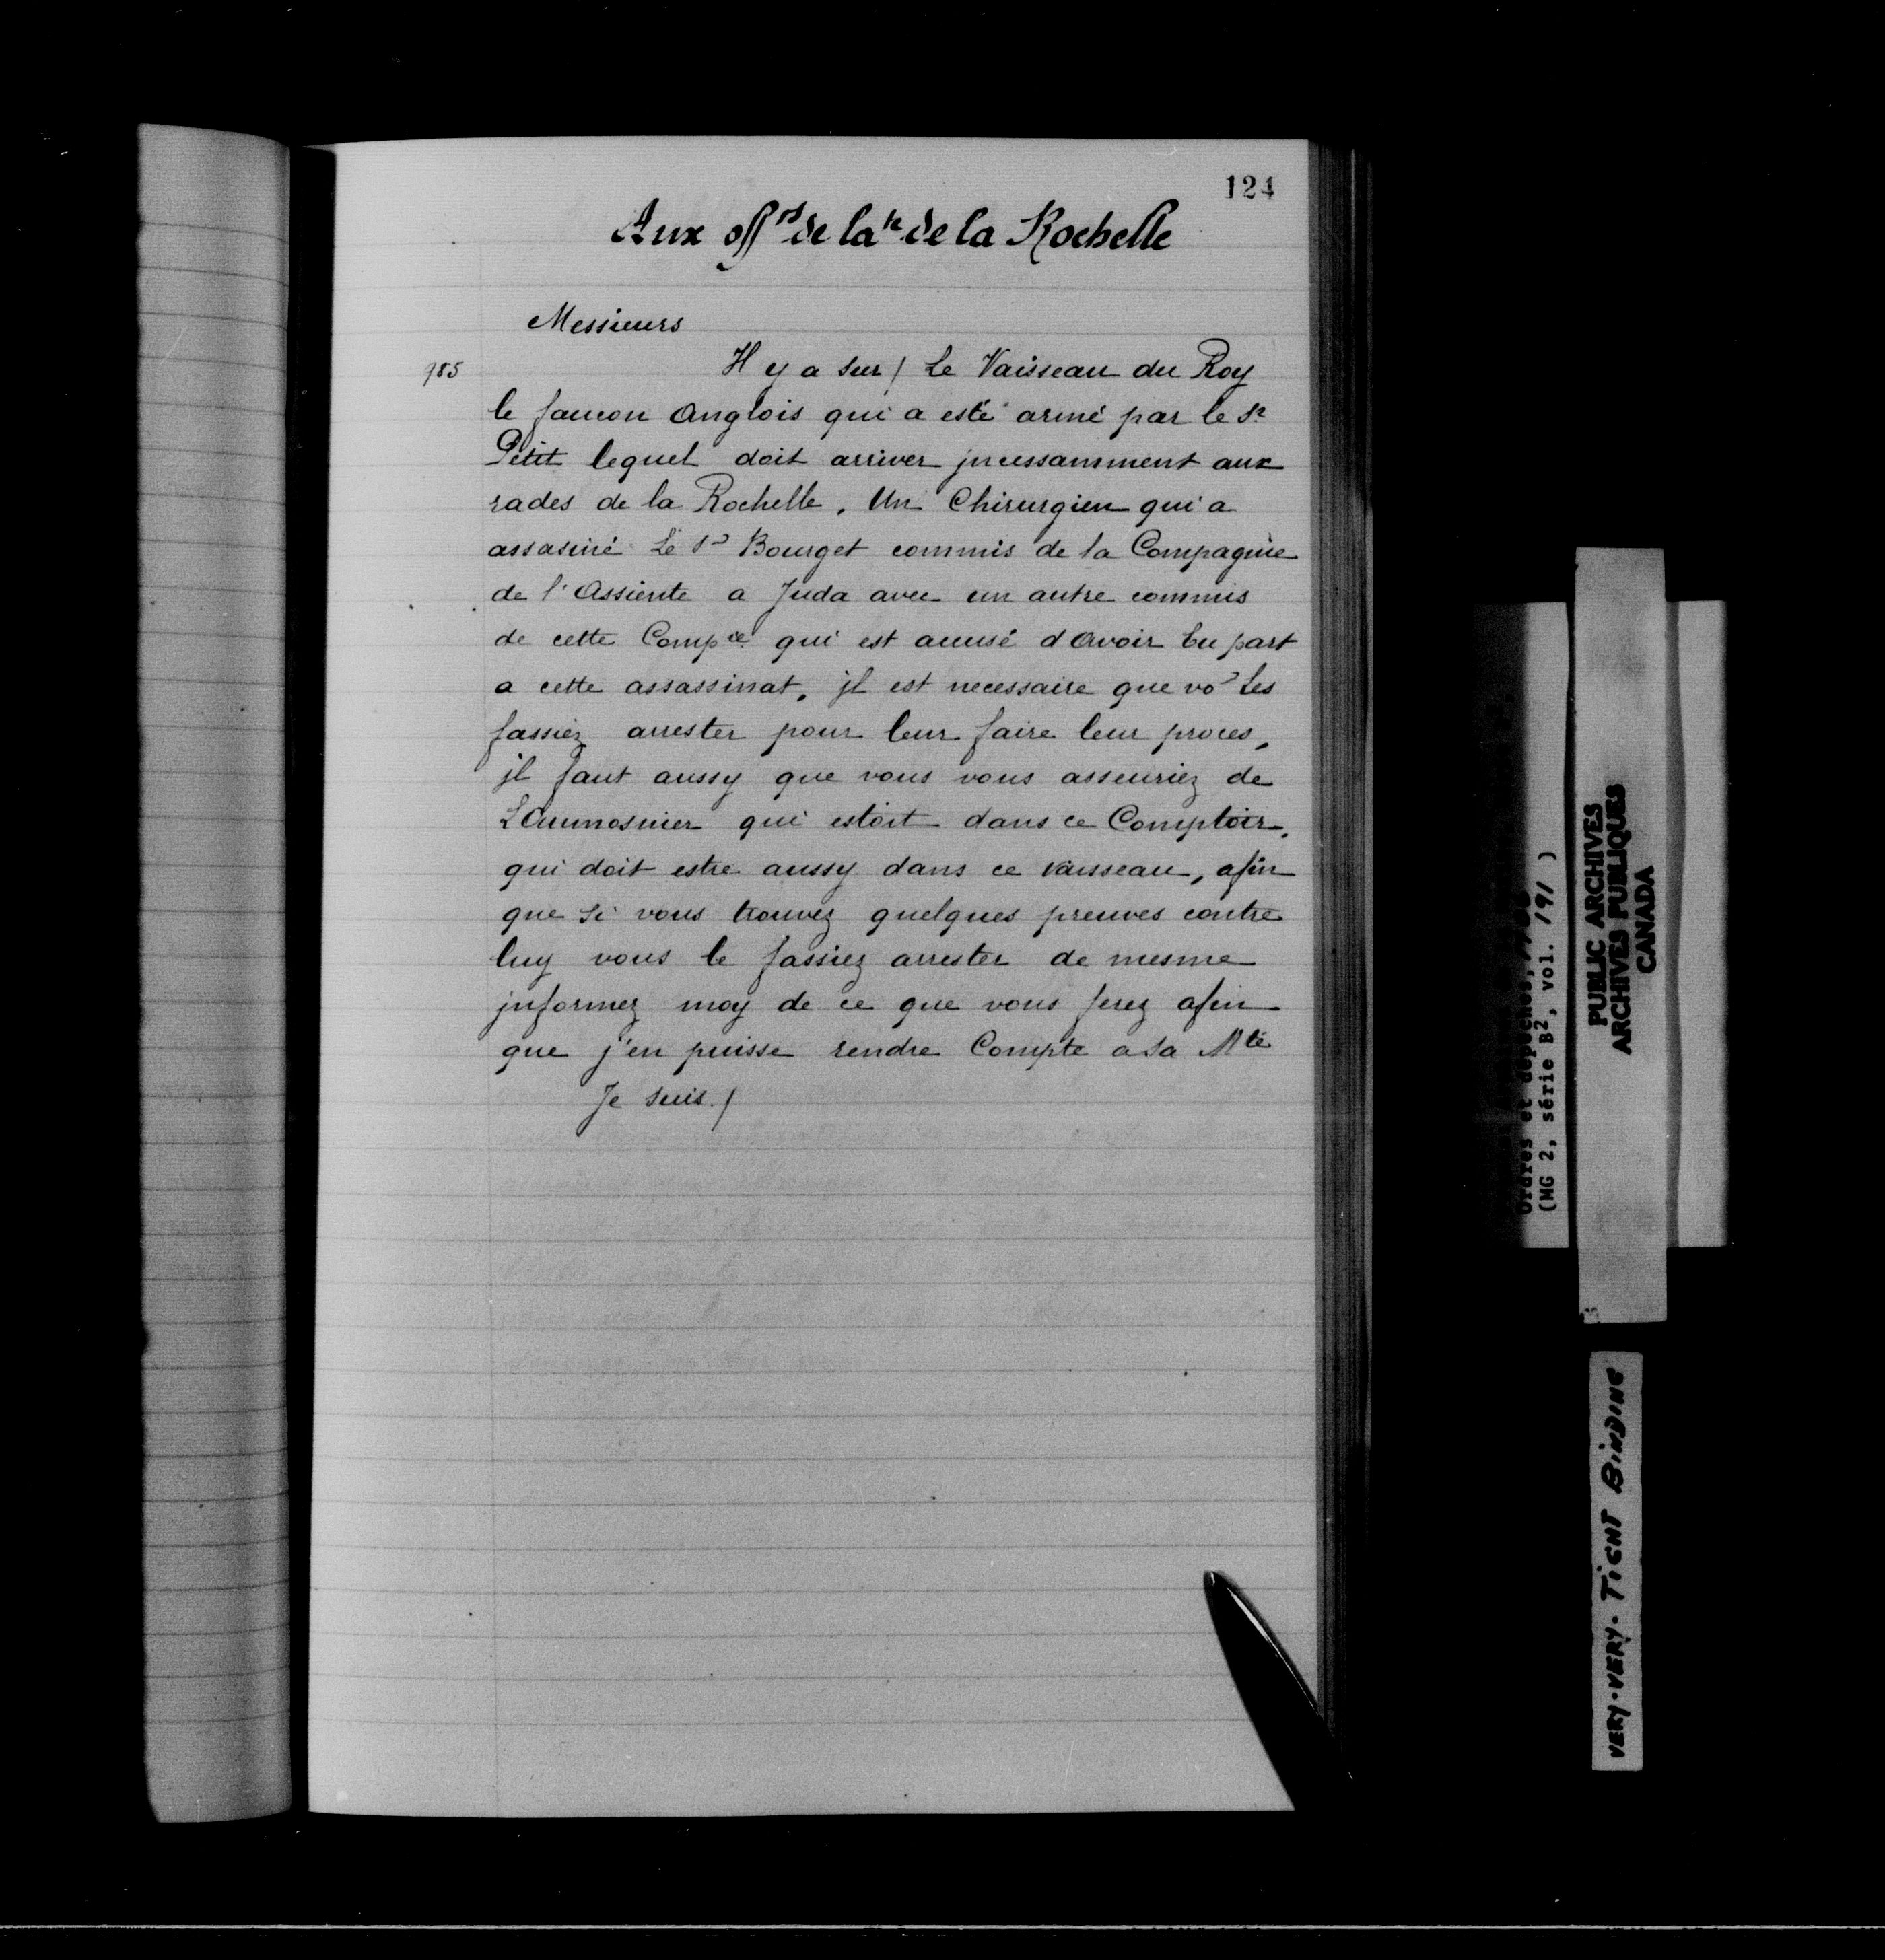 124
Aux offrs de la te de la Rochelle
Messieurs
985
Il y a sur / Le Vaisseau du Roy
le faucon Anglois qui a esté armé par le Sr
Petit lequel doit arriver jncessamment aux
rades de la Rochelle. Un Chirurgien qui a
assasiné Le Sr Bourget commis de la Compagnie
de l'Assiente a Juda avec un autre commis
de cette Compie qui est accusé d'Avoir Eu part
a cette assassinat, jl est necessaire que vos Les
fassiez arrester pour leur faire leur proces,
jl faut aussy que vous vous asseuriez de
L'Aumosnier qui estoit dans ce Comptoir,
qui doit estre aussy dans ce vaisseau, afin
que Si vous trouvez quelques preuves contre
luy vous le fassiez arrester de mesme
jnformez moy de ce que vous ferez afin
que j'en puisse rendre Compte a Sa Mté
Je suis /
Ordres et dépêches,
(MG 2, série B2, vol. 191 )
PUBLIC ARCHIVES
ARCHIVES PUBLIQUES
CANADA
VERY-VERY-TIGHT BINDING